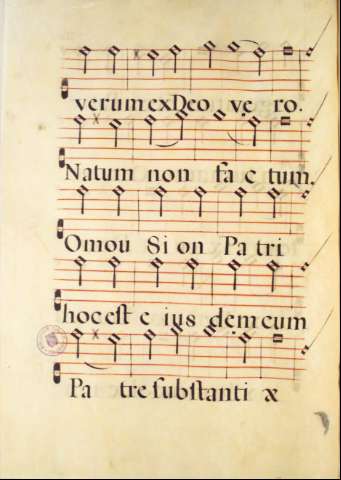 verum ex Deo ve ro.
Natum non fa c tum.
Omou Si on Pa tri
hoc est e ius dem cum
Pa tre substanti æ